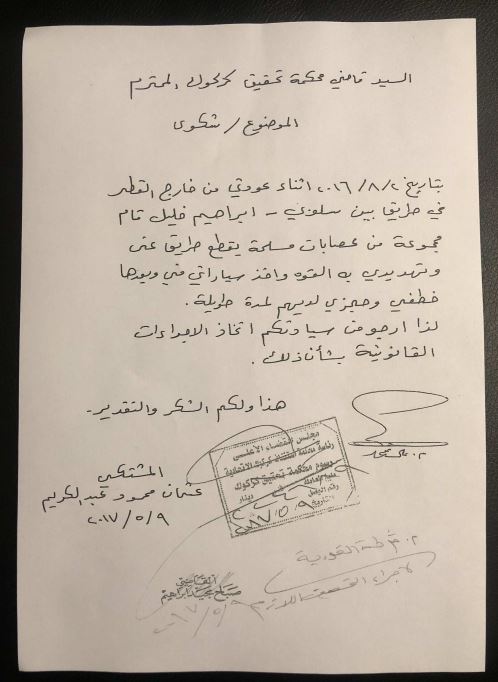 السيد قاضي محكمة تحقيق كركوك المحترم
الموضوع / شكوى
بتاريخ ٢٠١٦/٨/٢ اثناء عودتي من خارج القطر
في طريق بين سلوزي - ابراهيم خليل قام
مجموعة من عصابات مسلحة يقطع طريق عني
وتهديدي به القوه واخذ سياراتي مني وبعدها
خطفي وحجزي لديهم لمدة طويلة .
لذا ارجو من سيادتكم اتخاذ الاجراءات
القانونية بشأن ذلك .
هذا ولكم الشكر والتقدير -
المشتكي
عثمان محمود عبدالكريم
٢٠١٧/٥/٩
مجلس القضاء الأعلى
رئاسة محكمة استئناف كركوك الاتحادية
رسوم محكمة تحقيق كركوك
دينار
التاريخ
م. شرطة القورية
لاجراء التحقيق اللازم
القاضي
٢٠١٧/٥/٩